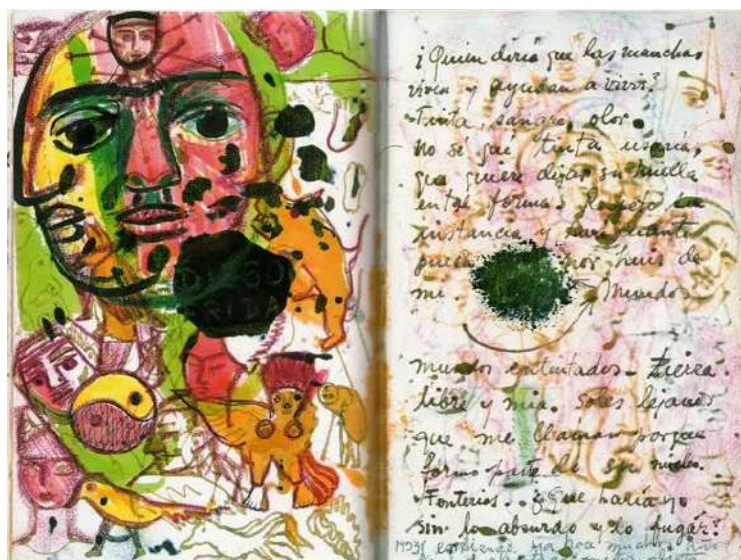 DIEGO
FRIDA
¿Quien diría que las manchas
viven y ayudan a vivir?
Tinta, sangre, olor.
no sé qué tinta usaría,
que quiere dejar su huella
en tal forma. Respeto su
instancia y haré cuanto
pueda por huir de
mi. Mundo
mundos entintados - tierra
libre y mia. Soles lejanos
que me llaman porque
formo parte de su núcleo.
Tonterias.. ¿Que haría yo
sin lo absurdo y lo fugáz?
1953 entiendo ya hace muchos